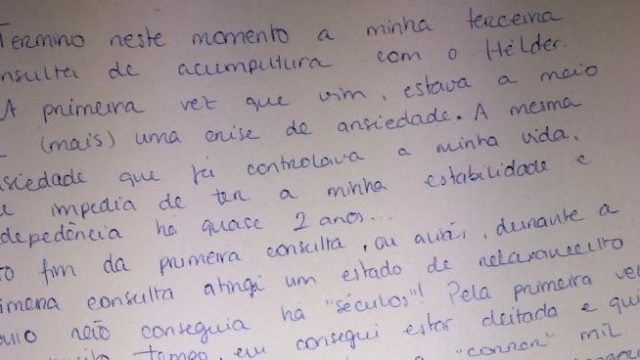 Termino neste momento a minha terceira
nsulta de acumputura com o Hélder.
A primeira vez que vim, estava a meio
(mais) uma crise de ansiedade. A mesma
nsiedade que já controlava a minha vida.
e impedia de ter a minha estabilidade e
depedência há quase 2 anos...
o fim da primeira consulta, ou aliás, durante a
imeira consulta atingi um estado de relaxamento
não conseguia há "séculos"! Pela primeira vez
tempo, eu consegui estar deitada e qui
"correr" mil